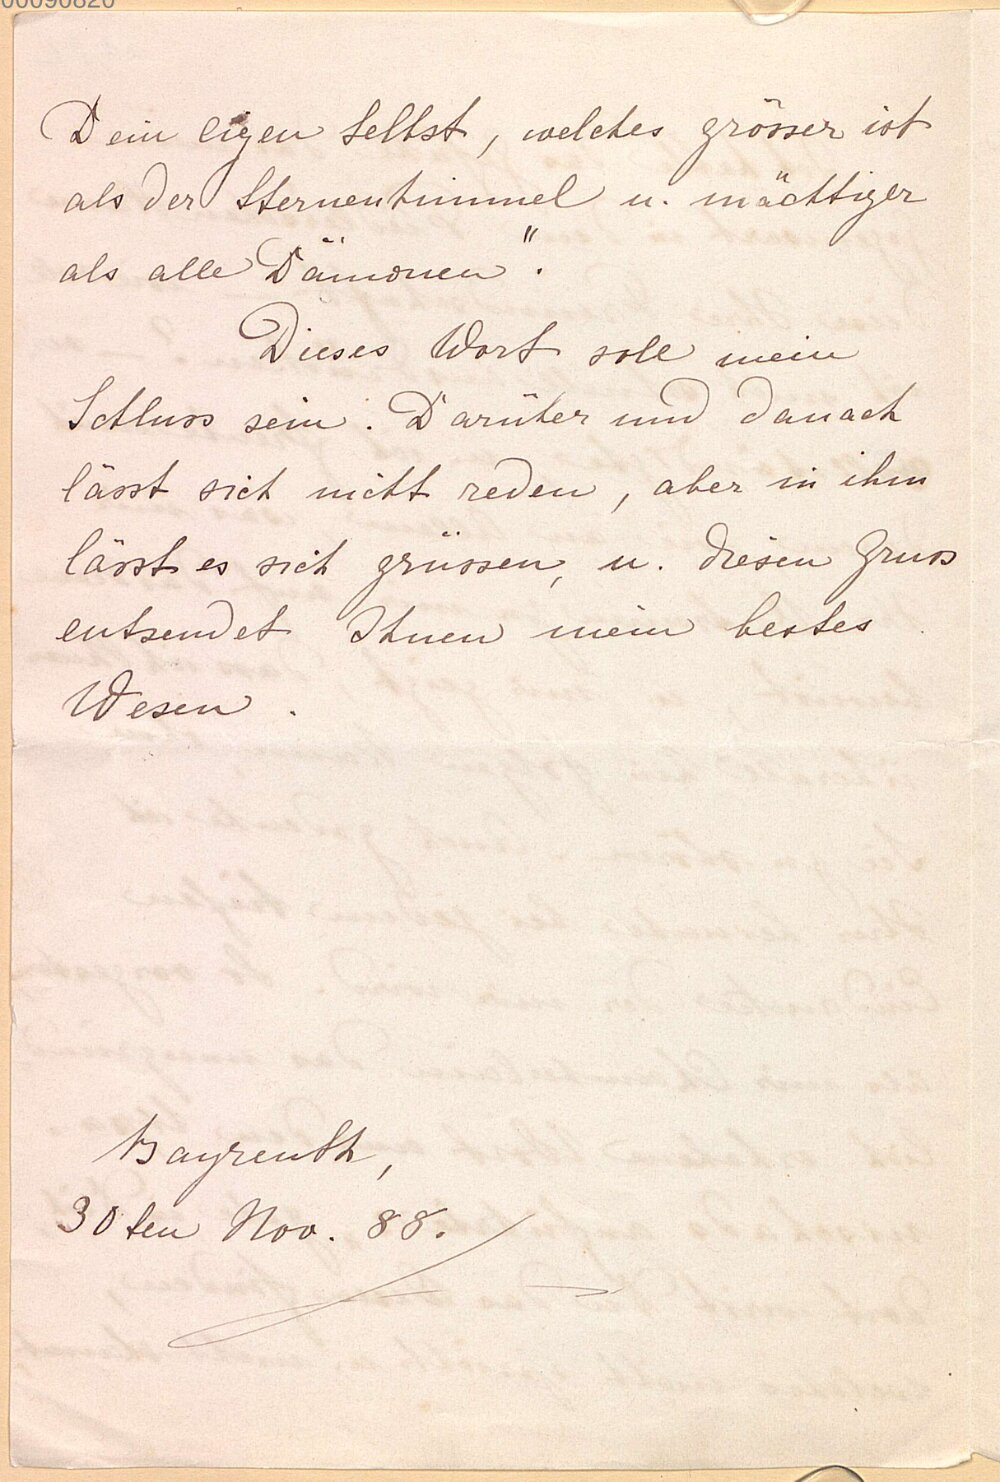 00090820
Dein eigen Selbst, welches grösser ist
als der Sternenhimmel u. mächtiger
als alle Dämonen".
Dieses Wort soll mein
Schluss sein. Darüber und danach
lässt sich nicht reden, aber in ihm
lässt es sich grüssen, u. diesen Gruss
entsendet Ihnen mein bestes
Wesen.
Bayreuth,
30ten Nov. 88.